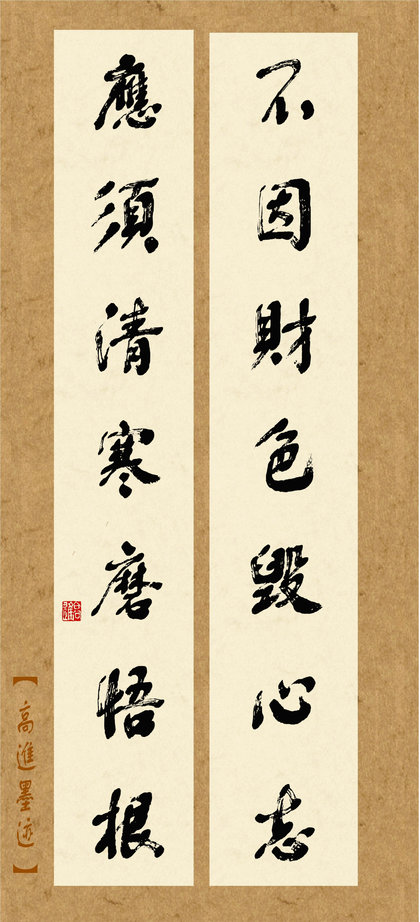 不因財色毀心志
應須清寒磨悟根
【高進墨迹】